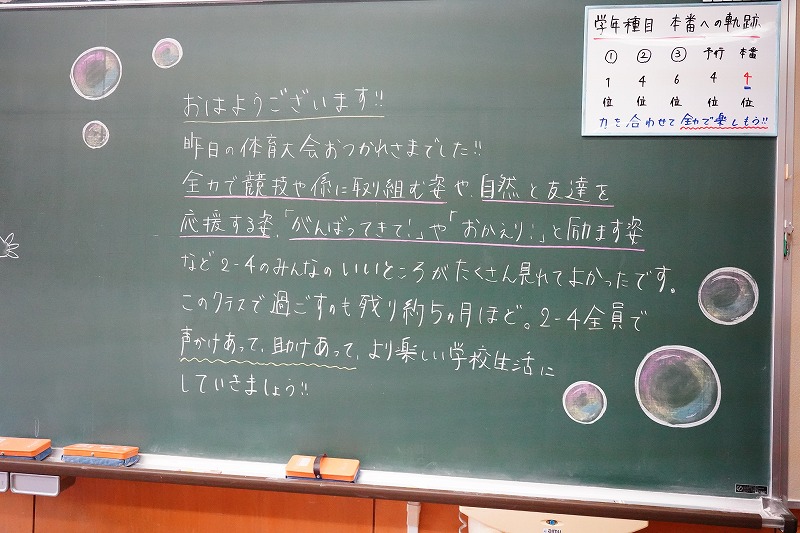 おはようございます!!
昨日の体育大会おつかれさまでした!!
全力で競技や係に取り組む姿や、自然と友達を
応援する姿、「がんばってきて!」や「おかえり!」と励ます姿
など2-4のみんなのいいところがたくさん見れてよかったです。
このクラスで過ごすのも残り約5ヵ月ほど。2-4全員で
声かけあって、助けあって、より楽しい学校生活に
していきましょう!!
学年種目 本番への軌跡
① ② ③ 予行 本番
1 4 6 4 4
位 位 位 位 位
力を合わせて全力で楽しもう!!